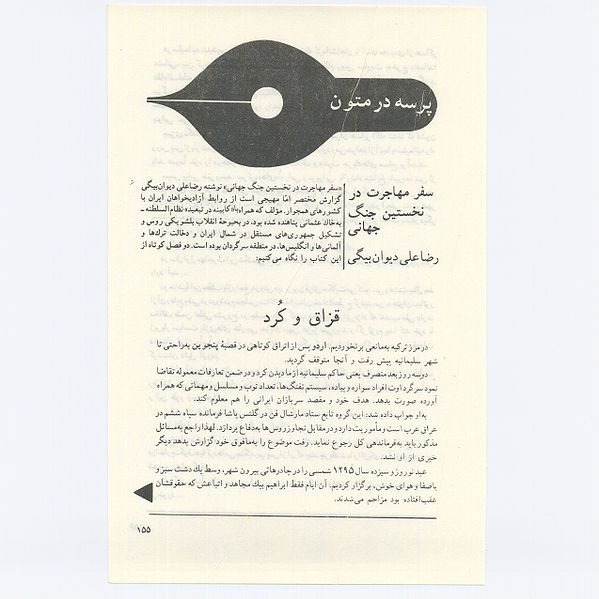 پرسه در متون
سفر مهاجرت در
نخستین جنگ
جهانی
رضاعلی دیوان‌بیگی
«سفر مهاجرت در نخستین جنگ جهانی» نوشته رضاعلی دیوان‌بیگی
گزارش مختصر امّا مهیجی است از روابط آزادیخواهان ایران با
کشورهای همجوار. مؤلف که همراه با «کابینه در تبعید» نظام السلطنه ـ
به‌خاک عثمانی پناهنده شده بود. در بحبوحهٔ انقلاب بلشویکی روس و
تشکیل جمهوری‌های مستقل در شمال ایران و دخالت ترک‌ها و
آلمانی‌ها و انگلیس‌ها، در منطقه سرگردان بوده است. دو فصل کوتاه از
این کتاب را نگاه می‌کنیم:
قزاق و کُرد
در مرز ترکیه به‌مانعی برنخوردیم. اردو پس از اتراق کوتاهی در قصبهٔ پنجوین به‌راحتی تا
شهر سلیمانیه پیش رفت و آنجا متوقف گردید.
دو سه روز بعد متصرف یعنی حاکم سلیمانیه از ما دیدن کرد و در ضمن تعارفات معموله تقاضا
نمود سرگرد اوت افراد سواره و پیاده، سیستم تفنگ‌ها، تعداد توپ و مسلسل و مهماتی که همراه
آورده صورت بدهد. هدف خود و مقصد سربازان ایرانی را هم معلوم کند.
به‌او جواب داده شد: این گروه تابع ستاد مارشال فن در گلتس پاشا فرمانده سپاه ششم در
عراق عرب است و مأموریت دارد در مقابل تجاوز روس‌ها به‌دفاع بپردازد. لهذا راجع به‌مسائل
مذکور باید به‌فرماندهی کل رجوع نماید. رفت موضوع را به‌مافوق خود گزارش بدهد دیگر
خبری از او نشد.
عید نوروز و سیزده سال ۱۲۹۵ شمسی را در چادرهائی بیرون شهر، وسط یك دشت سبز و
باصفا و هوای خوش، برگزار کردیم. آن ایام فقط ابراهیم بیك مجاهد و اتباعش که حقوقشان
عقب‌افتاده بود مزاحم می‌شدند.
۱۵۵